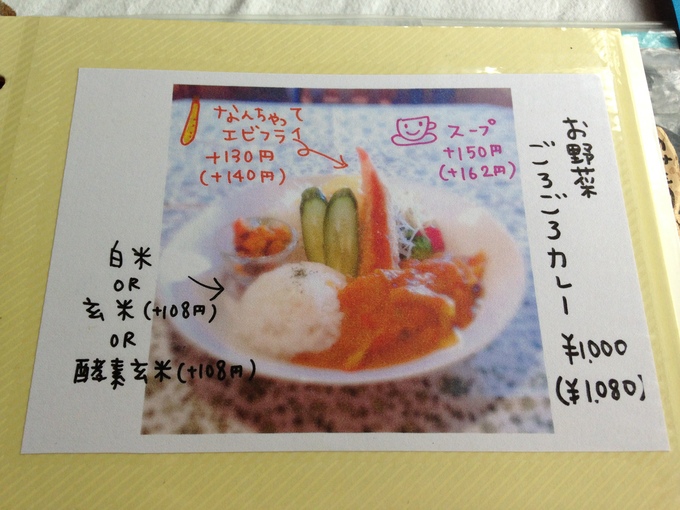 お野菜
ごろごろカレー
¥1,000
(¥1,080)
なんちゃって
エビフライ
+130円
(+140円)
スープ
+150円
(+162円)
白米
OR
玄米(+108円)
OR
酵素玄米(+108円)